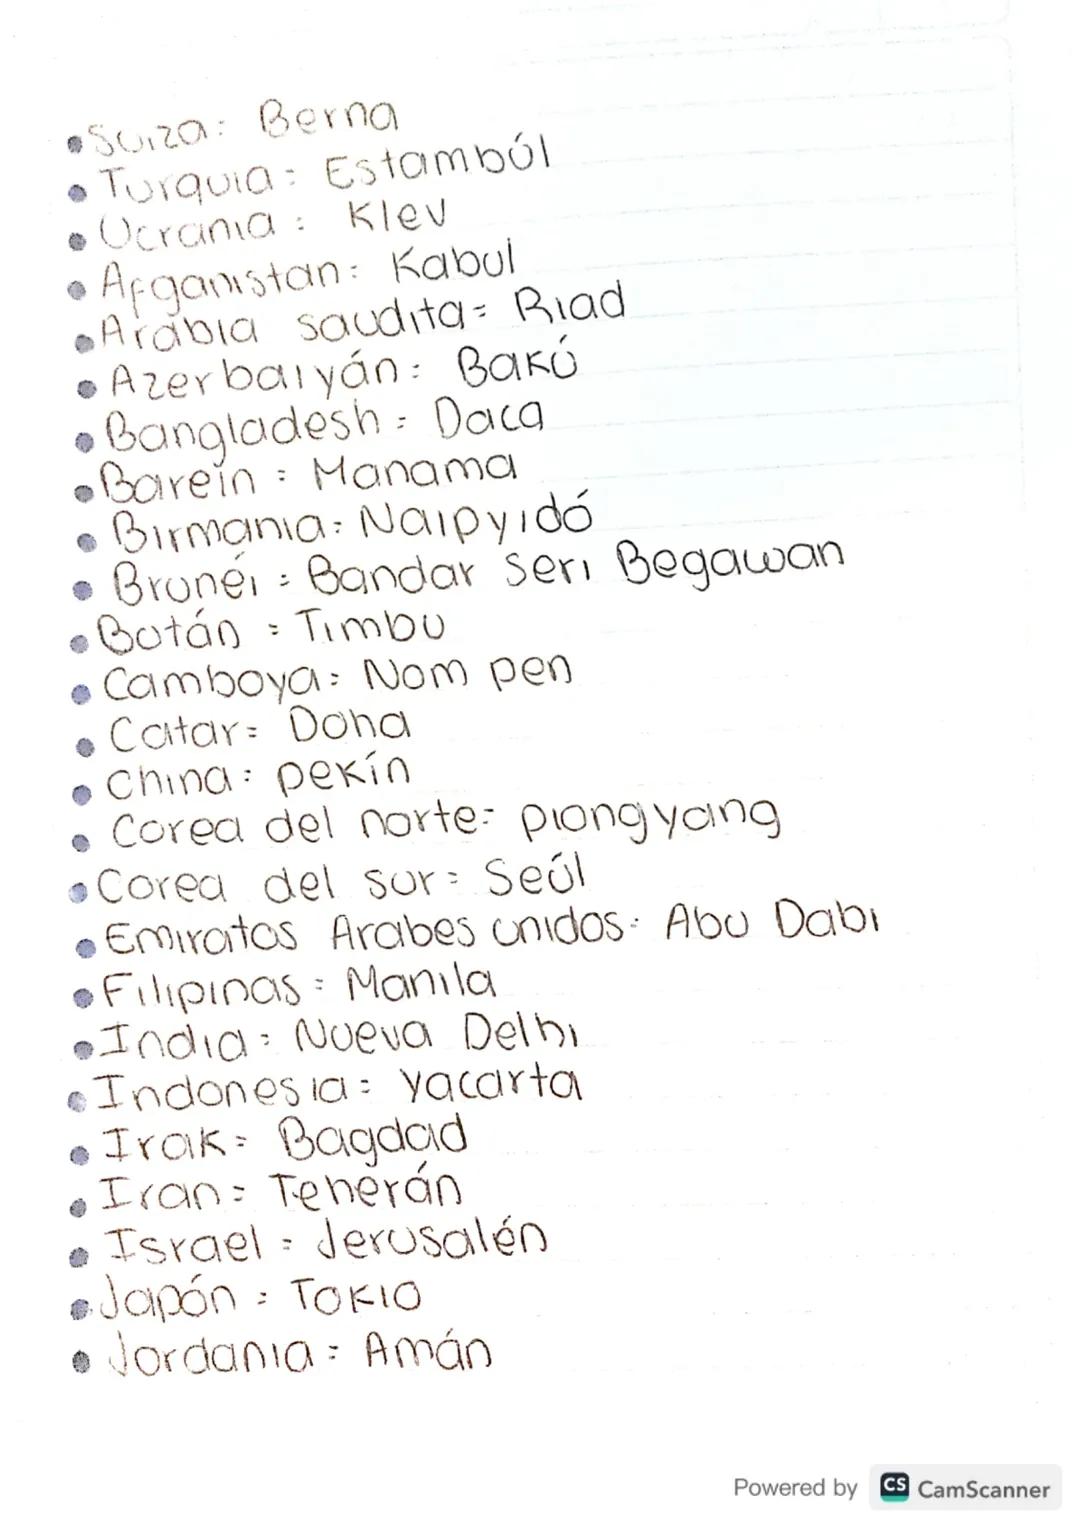 • Suiza: Berna
• Turquia: Estambúl
• Ucrania: Kiev
• Afganistan: Kabul
• Arabia saudita: Riad
• Azerbaiyán: Bakú
• Bangladesh: Daca
• Barein: Manama
• Birmania: Naipyidó
• Brunéi: Bandar Seri Begawan
• Bután: Timbu
• Camboya: Nom pen
• Catar: Doha
• China: pekín
• Corea del norte: piongyang
• Corea del sur: Seúl
• Emiratos Arabes unidos: Abu Dabi
• Filipinas: Manila
• India: Nueva Delhi
• Indonesia: yacarta
• Irak: Bagdad
• Iran: Teherán
• Israel: Jerusalén
• Japón: Tokio
• Jordania: Amán
Powered by CS CamScanner